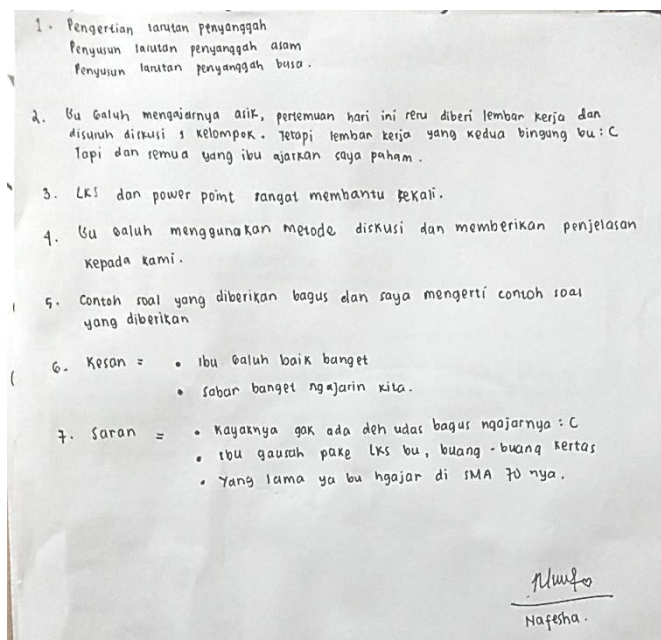 1. Pengertian larutan penyanggah
Penyusun larutan penyanggah asam
Penyusun larutan penyanggah basa.
2. Bu Galuh mengajarnya asik, pertemuan hari ini seru diberi lembar kerja dan
disuruh diskusi 1 kelompok. Tetapi lembar kerja yang kedua bingung bu : C
Tapi dan semua yang ibu ajarkan saya paham.
3. LKS dan power point sangat membantu sekali.
4. Bu Galuh menggunakan metode diskusi dan memberikan penjelasan
kepada kami.
5. Contoh soal yang diberikan bagus dan saya mengerti contoh soal
yang diberikan
6. Kesan = • Ibu Galuh baik banget
• Sabar banget ngajarin kita.
7. Saran = • Kayaknya gak ada deh udas bagus ngajarnya : C
• Ibu gausah pake LKS bu, buang-buang kertas
• Yang lama ya bu ngajar di SMA 70 nya.
Nafesha.